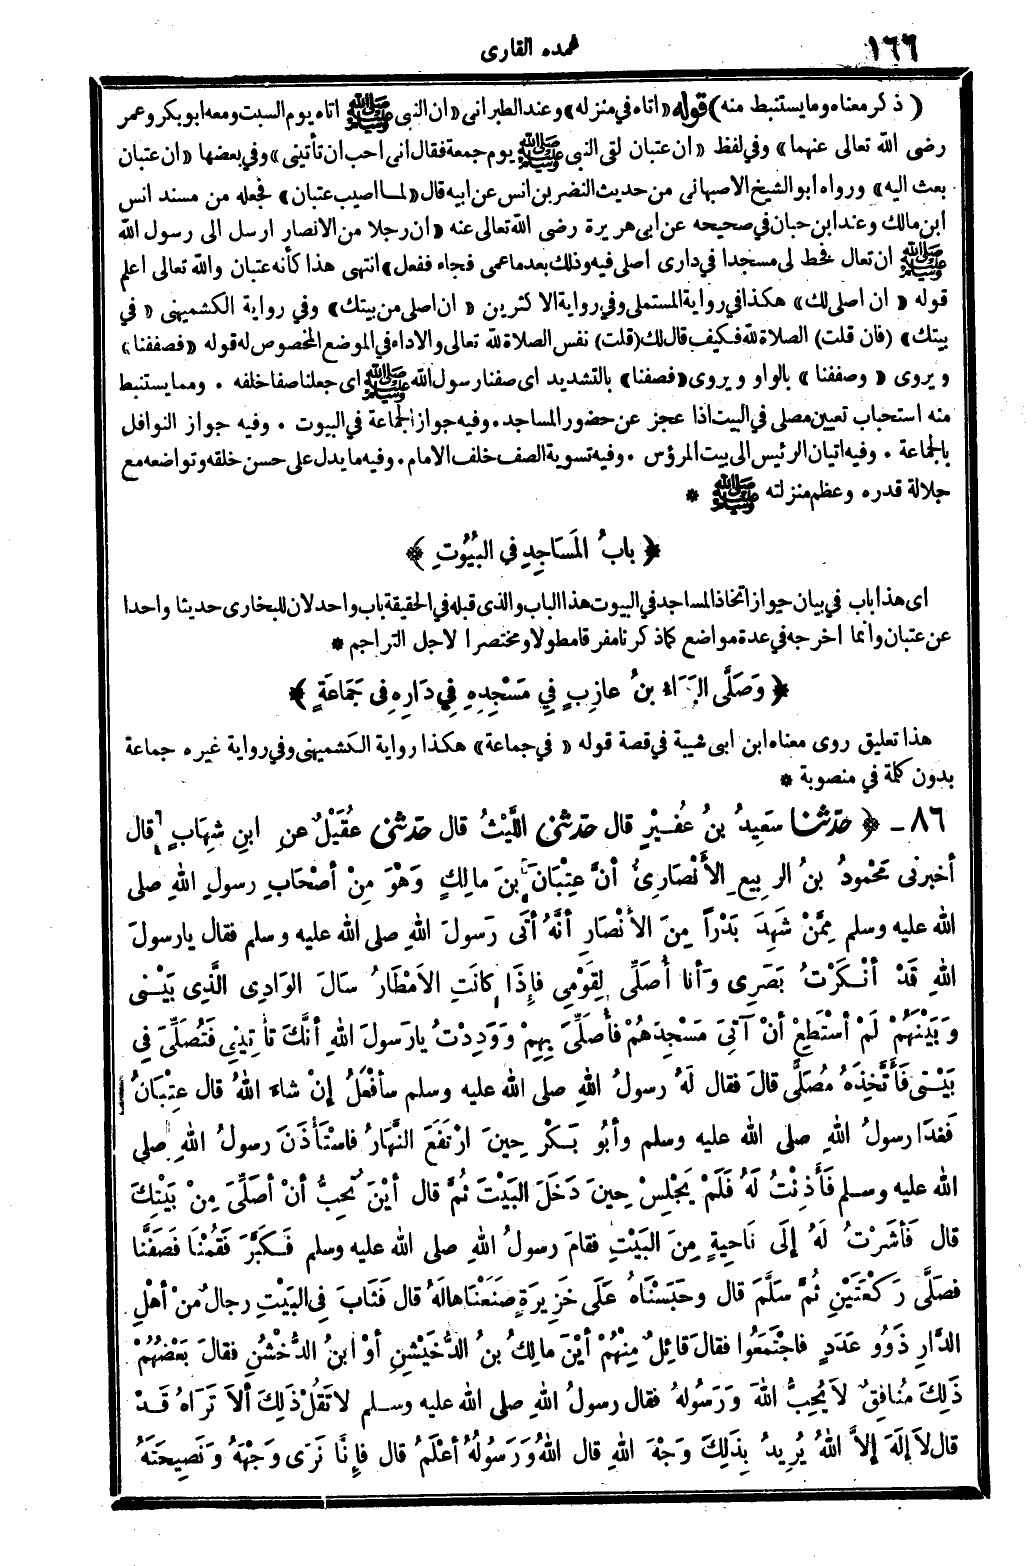 ١٦٦
عمده القارى
(ذكر معناه وما يستنبط منه) قوله «اتاه في منزله» وعند الطبرانى «ان النبى ﷺ اتاه يوم السبت ومعه ابو بكر وعمر
رضى الله تعالى عنهما» وفي لفظ «ان عتبان لقى النبى ﷺ يوم جمعة فقال انى احب ان تأتينى» وفي بعضها «ان عتبان
بعث اليه» ورواه ابو الشيخ الاصبهانى من حديث النضر بن انس عن ابيه قال «لما اصيب عتبان» فجعله من مسند انس
ابن مالك وعند ابن حبان في صحيحه عن ابى هريرة رضى الله تعالى عنه «ان رجلا من الانصار ارسل الى رسول الله
ﷺ ان تعال فخط لى مسجدا في دارى اصلى فيه وذلك بعد ما عمى فجاء ففعل» انتهى هذا كأنه عتبان والله تعالى اعلم
قوله «ان اصلى لك» هكذا في رواية المستملى وفي رواية الاكثرين «ان اصلى من بيتك» وفي رواية الكشميهنى «في
بيتك» (فان قلت) الصلاة لله فكيف قال لك (قلت) نفس الصلاة لله تعالى والاداء في الموضع المخصوص له قوله «فصففنا»
ويروى «وصففنا» بالواو ويروى «فصفنا» بالتشديد اى صفنا رسول الله ﷺ اى جعلنا صفا خلفه . ومما يستنبط
منه استحباب تعيين مصلى في البيت اذا عجز عن حضور المساجد . وفيه جواز الجماعة في البيوت . وفيه جواز النوافل
بالجماعة . وفيه اتيان الرئيس الى بيت المرؤس . وفيه تسوية الصف خلف الامام . وفيه ما يدل على حسن خلقه وتواضعه مع
جلالة قدره وعظم منزلته ﷺ *
﴿ بابُ المَسَاجِدِ في البُيُوتِ ﴾
اى هذا باب في بيان جواز اتخاذ المساجد في البيوت هذا الباب والذى قبله في الحقيقة باب واحد لان للبخارى حديثا واحدا
عن عتبان وانما اخرجه في عدة مواضع كما ذكرنا مفرقا مطولا ومختصرا لاجل التراجم *
﴿ وَصَلَّى البَرَاءُ بنُ عازِبٍ فِي مَسْجِدِهِ فِي دَارِهِ فى جَمَاعَةٍ ﴾
هذا تعليق روى معناه ابن ابى شيبة في قصة قوله «في جماعة» هكذا رواية الكشميهنى وفي رواية غيره جماعة
بدون كلمة في منصوبة *
٨٦ - ﴿ حدثنا سَعِيدُ بنُ عُفَيْرٍ قال حدثنى اللَّيْثُ قال حدثنى عُقَيْلٌ عنِ ابنِ شِهَابٍ قال
أخبرنى مَحْمُودُ بنُ الرَّبِيعِ الأَنْصَارِىُّ أنَّ عِتْبَانَ بنَ مالِكٍ وَهْوَ مِنْ أصْحَابِ رسولِ اللهِ صلى
الله عليه وسلم مِمَّنْ شَهِدَ بَدْراً مِنَ الأَنْصَارِ أنَّهُ أتَى رَسولَ اللهِ صلى الله عليه وسلم فقال يا رسولَ
اللهِ قَدْ أنْكَرْتُ بَصَرِى وَأنا أُصَلِّى لِقَوْمِى فإذَا كانَتِ الأمْطَارُ سالَ الوَادِى الَّذِى بَيْنِى
وَبَيْنَهُمْ لَمْ أسْتَطِعْ أنْ آتِىَ مَسْجِدَهُمْ فأُصَلِّىَ بِهِمْ وَوَدِدْتُ يا رسولَ اللهِ أنَّكَ تأتِينِى فَتُصَلِّىَ فِي
بَيْتِى فَأتَّخِذَهُ مُصَلًّى قالَ فقال لَهُ رسولُ اللهِ صلى الله عليه وسلم سأفْعَلُ إنْ شاءَ اللهُ قال عِتْبَانُ
فَغَدَا رسولُ اللهِ صلى الله عليه وسلم وأبُو بَكْرٍ حِينَ ارْتَفَعَ النَّهَارُ فاسْتَأْذَنَ رسولُ اللهِ صلى
الله عليه وسلم فَأَذِنْتُ لَهُ فَلَمْ يَجْلِسْ حِينَ دَخَلَ البَيْتَ ثُمَّ قال أيْنَ تُحِبُّ أنْ أُصَلِّىَ مِنْ بَيْتِكَ
قال فَأشَرْتُ لَهُ إلَى ناحِيةٍ مِنَ البَيْتِ فقامَ رسولُ اللهِ صلى الله عليه وسلم فَكَبَّرَ فَقُمْنَا فَصَفَّنَا
فصَلَّى رَكْعَتَيْنِ ثُمَّ سَلَّمَ قال وحَبَسْنَاهُ عَلَى خَزِيرَةٍ صَنَعْنَاها لَهُ قال فَثَابَ فِى البَيْتِ رِجالٌ مِنْ أهْلِ
الدَّارِ ذَوُو عَدَدٍ فاجْتَمَعُوا فقالَ قائِلٌ مِنْهُمْ أيْنَ مالِكُ بنُ الدُّخَيْشِنِ أوْ ابنُ الدُّخْشُنِ فقالَ بَعْضُهُمْ
ذَلِكَ مُنَافِقٌ لاَ يُحِبُّ اللهَ وَرَسُولَهُ فقال رسولُ اللهِ صلى الله عليه وسلم لا تَقُلْ ذَلِكَ ألاَ تَرَاهُ قَدْ
قال لاَ إلَهَ إلاَّ اللهُ يُرِيدُ بِذَلِكَ وَجْهَ اللهِ قال اللهُ وَرَسُولُهُ أعْلَمُ قال فإِنَّا نَرَى وَجْهَهُ وَنَصِيحَتَهُ